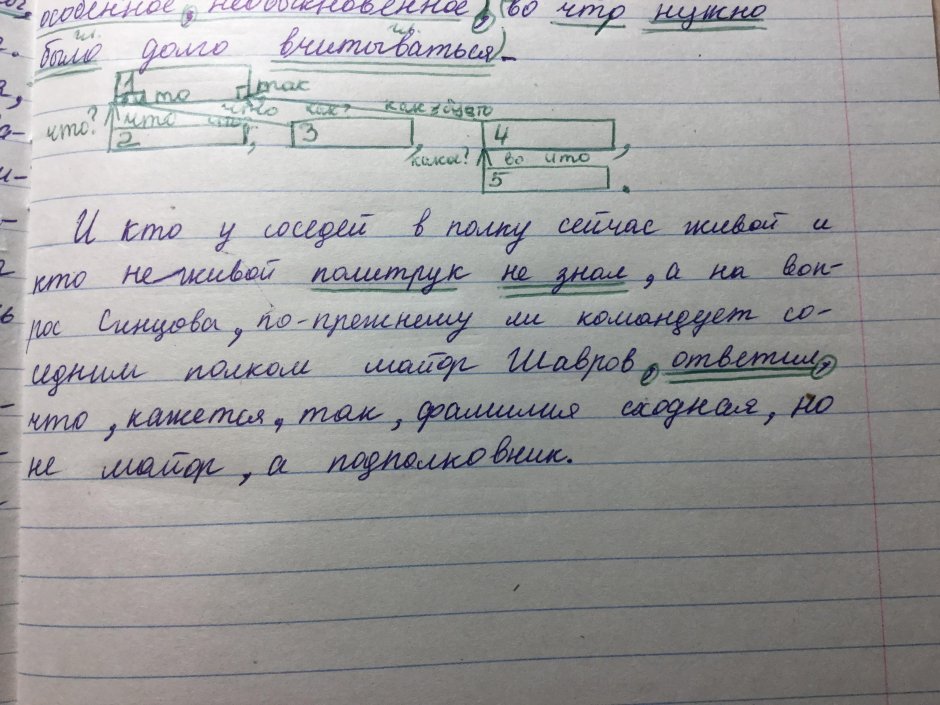 особенное, необыкновенное, (во что нужно
было долго вчитываться).
1 так
что? что как? как будто
2, 3, 4,
какое? во что
5.
И кто у соседей в полку сейчас живой и
кто не живой политрук не знал, а на воп-
рос Синцова, по-прежнему ли командует со-
седним полком майор Шавров, ответил,
что, кажется, так, фамилия сходная, но
не майор, а подполковник.